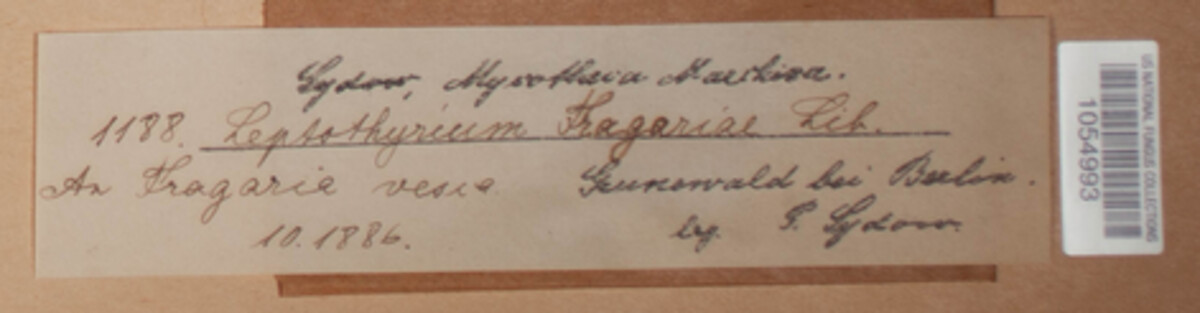 Sydow, Mycotheca Marchica.
1188. Leptothyrium Fragariae Lib.
An Fragaria vesca Grunewald bei Berlin.
10.1886. leg. P. Sydow.
US NATIONAL FUNGUS COLLECTIONS
1054993